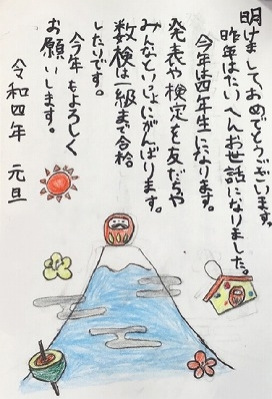 明けましておめでとうございます。
昨年はたいへんお世話になりました。
今年は四年生になります。
発表や検定を友だちや
みんなといっしょにがんばります。
数検は一級まで合格
したいです。
今年もよろしく
お願いします。
令和四年 元旦